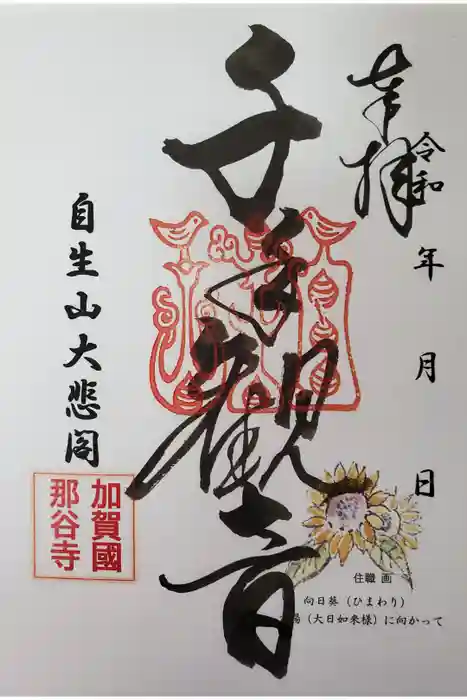 奉拝
令和 年 月 日
千手観音
自生山大悲閣
加賀國
那谷寺
住職 画
向日葵（ひまわり）
陽（大日如来様）に向かって